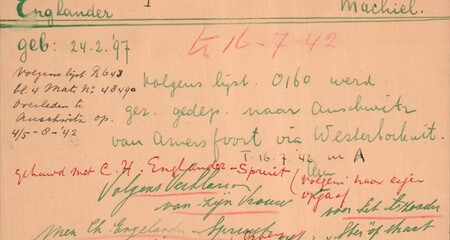 Englander Machiel.
geb: 24.2.'97
tr 16-7-42
Volgens lijst R643
bl. 4 Matr. No 48490
Overleden te
Auschwitz op.
4/5-8-'42
Volgens lijst. 0160 werd
gez. gedep. naar Auschwitz
van Amersfoort via Westerbork uit.
T. 16.7.'42 m A
gehuwd met C. H. Englander-Spruit
(volgens haar eigen
opgaaf
Volgens
van zijn vrouw
voor het
Mev. Ch. Englander-
op straat